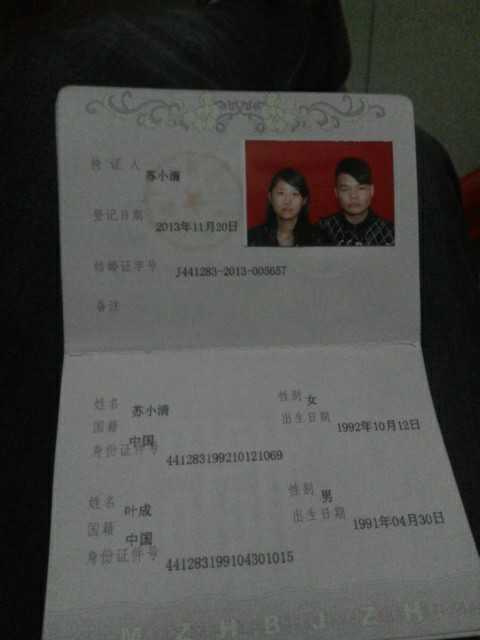 持证人 苏小清
登记日期 2013年11月20日
结婚证字号 J441283-2013-005657
备注
姓名 苏小清 性别 女
国籍 中国 出生日期 1992年10月12日
身份证件号 441283199210121069
姓名 叶成 性别 男
国籍 中国 出生日期 1991年04月30日
身份证件号 441283199104301015
M Z H B J Z H